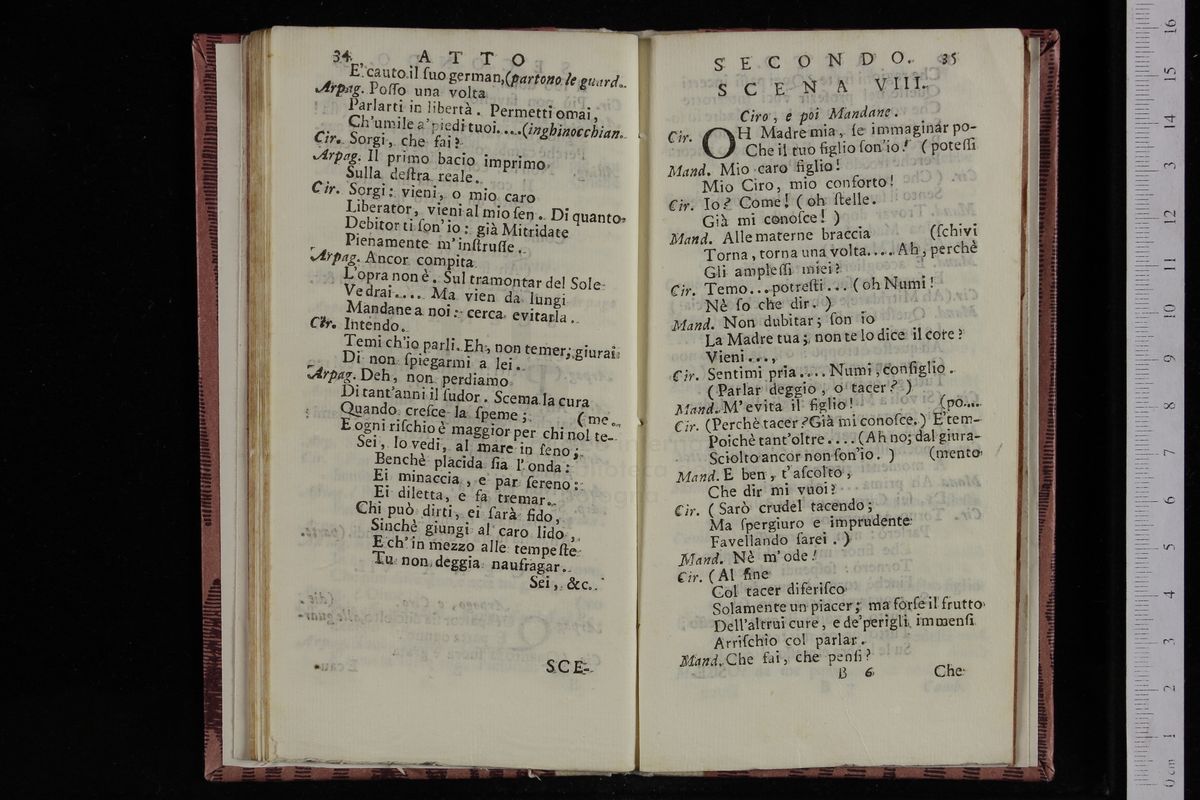 34 ATTO
E' cauto il ſuo german, (partono le guard.
Arpag. Poſſo una volta
Parlarti in libertà. Permetti omai,
Ch'umile a' piedi tuoi.... (inghinocchian.
Cir. Sorgi, che fai?
Arpag. Il primo bacio imprimo
Sulla deſtra reale.
Cir. Sorgi: vieni, o mio caro
Liberator, vieni al mio ſen. Di quanto
Debitor ti ſon' io: già Mitridate
Pienamente m'inſtruſſe.
Arpag. Ancor compita
L'opra non è. Sul tramontar del Sole
Vedrai.... Ma vien da lungi
Mandane a noi: cerca evitarla.
Cir. Intendo.
Temi ch'io parli. Eh, non temer; giurai
Di non ſpiegarmi a lei.
Arpag. Deh, non perdiamo
Di tant'anni il ſudor. Scema la cura
Quando creſce la ſpeme; (me.
E ogni riſchio è maggior per chi nol te-
Sei, lo vedi, al mare in ſeno;
Benchè placida ſia l'onda:
Ei minaccia, e par ſereno:
Ei diletta, e fa tremar.
Chi può dirti, ei ſarà fido,
Sinchè giungi al caro lido,
E ch' in mezzo alle tempeſte
Tu non deggia naufragar.
Sei, &c.
SCE-
SECONDO. 35
SCENA VIII.
Ciro, e poi Mandane.
Cir. OH Madre mia, ſe immaginar po-
Che il tuo figlio ſon'io! (poteſſi
Mand. Mio caro figlio!
Mio Ciro, mio conforto!
Cir. Io? Come! (oh ſtelle.
Già mi conoſce!)
Mand. Alle materne braccia (ſchivi
Torna, torna una volta.... Ah, perchè
Gli ampleſſi miei?
Cir. Temo... potreſti... (oh Numi!
Nè ſo che dir.)
Mand. Non dubitar; ſon io
La Madre tua; non te lo dice il core?
Vieni...,
Cir. Sentimi pria.... Numi, conſiglio.
(Parlar deggio, o tacer?)
Mand. M'evita il figlio! (po....
Cir. (Perchè tacer? Già mi conoſce.) E' tem-
Poichè tant'oltre.... (Ah no; dal giura-
Sciolto ancor non ſon'io.) (mento
Mand. E ben, t'aſcolto,
Che dir mi vuoi?
Cir. (Sarò crudel tacendo;
Ma ſpergiuro e imprudente
Favellando ſarei.)
Mand. Nè m'ode!
Cir. (Al fine
Col tacer diferiſco
Solamente un piacer; ma forſe il frutto
Dell'altrui cure, e de' perigli immenſi
Arriſchio col parlar.
Mand. Che fai, che penſi?
B 6 Che